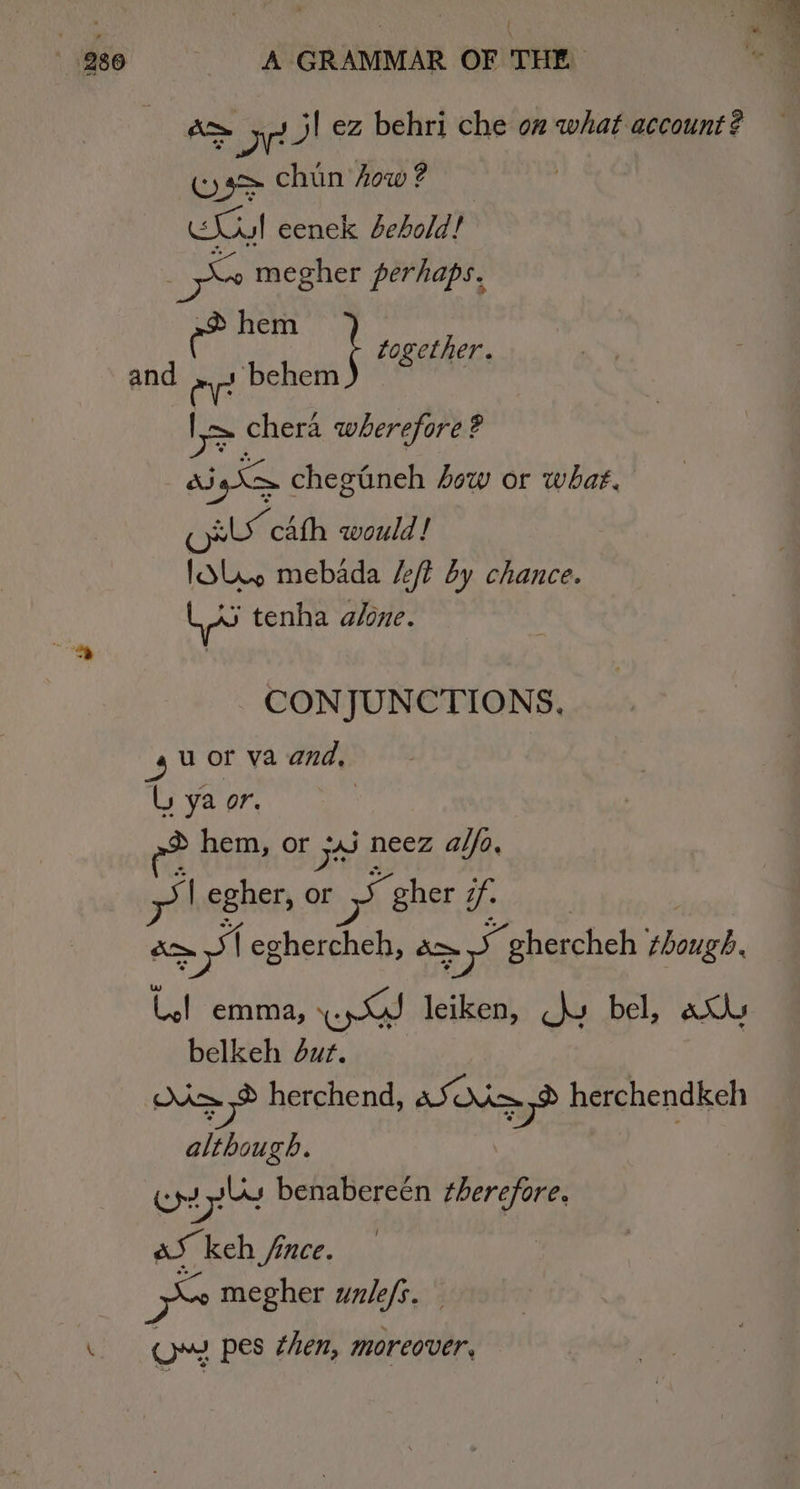 280 A GRAMMAR OF THE
از بهر چه ez behri che on what account?
چون chùn how?
اینک eenek behold!
مگر megher perhaps.
هم hem
together.
and بهم behem
چرا cherà wherefore?
چگونه chegûneh how or what.
کاش càſh would!
مبادا mebàda leſt by chance.
تنها tenha alone.
CONJUNCTIONS.
و u or va and.
یا ya or.
هم hem, or نیز neez alſo.
اگر egher, or گر gher if.
اگرچه eghercheh, گرچه ghercheh though.
امّا emma, لیکن leiken, بل bel, بلکه
belkeh but.
هرچند herchend, هرچندکه herchendkeh
although.
بنابرین benabereén therefore.
که keh ſince.
مگر megher unleſs.
پس pes then, moreover,